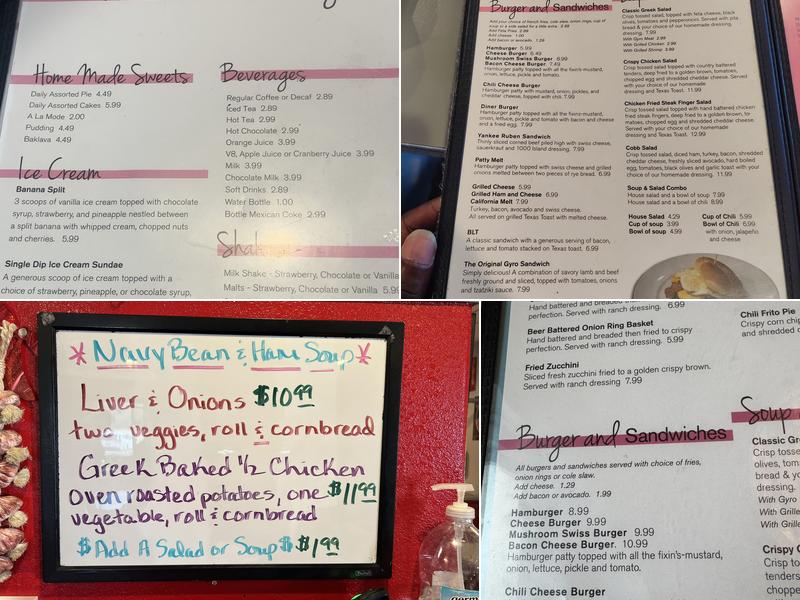 Home Made Sweets
Daily Assorted Pie 4.49
Daily Assorted Cakes 5.99
A La Mode 2.00
Pudding 4.49
Baklava 4.49
Ice Cream
Banana Split
3 scoops of vanilla ice cream topped with chocolate
syrup, strawberry, and pineapple nestled between
a split banana with whipped cream, chopped nuts
and cherries. 5.99
Single Dip Ice Cream Sundae
A generous scoop of ice cream topped with a
choice of strawberry, pineapple, or chocolate syrup,
Beverages
Regular Coffee or Decaf 2.89
Iced Tea 2.89
Hot Tea 2.99
Hot Chocolate 2.99
Orange Juice 3.99
V8, Apple Juice or Cranberry Juice 3.99
Milk 3.99
Chocolate Milk 3.99
Soft Drinks 2.89
Water Bottle 1.00
Bottle Mexican Coke 2.99
Milk Shake - Strawberry, Chocolate or Vanilla
Malts - Strawberry, Chocolate or Vanilla 5.99
Burger and Sandwiches
Add your choice of french fries, cole slaw, onion rings, cup of
soup or a side salad for a little extra. 2.99
Add Feta Fries 2.99
Add cheese 1.00
Add bacon or avocado. 1.29
Hamburger 5.99
Cheese Burger 6.49
Mushroom Swiss Burger 6.99
Bacon Cheese Burger 7.49
Hamburger patty topped with all the fixin's-mustard,
onion, lettuce, pickle and tomato.
Chili Cheese Burger
Hamburger patty with mustard, onion, pickles, and
cheddar cheese, topped with chili. 7.99
Diner Burger
Hamburger patty topped with all the fixin's-mustard,
onion, lettuce, pickle and tomato with bacon and cheese
and a fried egg. 7.99
Yankee Ruben Sandwich
Thinly sliced corned beef piled high with swiss cheese,
sauerkraut and 1000 Island dressing. 7.99
Patty Melt
Hamburger patty topped with swiss cheese and grilled
onions melted between two pieces of rye bread. 6.99
Grilled Cheese 5.99
Grilled Ham and Cheese 6.99
California Melt 7.99
Turkey, bacon, avocado and swiss cheese.
All served on grilled Texas Toast with melted cheese.
BLT
A classic sandwich with a generous serving of bacon,
lettuce and tomato stacked on Texas toast. 6.99
The Original Gyro Sandwich
Simply delicious! A combination of savory lamb and beef
freshly ground and sliced, topped with tomatoes, onions
and tzatziki sauce. 7.99
Classic Greek Salad
Crisp tossed salad, topped with feta cheese, black
olives, tomatoes and pepperoncini. Served with pita
bread & your choice of our homemade
dressing. 7.99
With Gyro Meat 2.99
With Grilled Chicken 2.99
With Grilled Shrimp 3.99
Crispy Chicken Salad
Crisp tossed salad with country battered
tenders, deep fried to a golden brown, tomatoes,
chopped egg and shredded cheddar cheese. Served
with your choice of our homemade
dressing and Texas Toast. 11.99
Chicken Fried Steak Finger Salad
Crisp tossed salad topped with hand battered chicken
fried steak fingers, deep fried to a golden brown, to-
matoes, chopped egg and shredded cheddar cheese.
Served with your choice of our homemade
dressing and Texas Toast. 12.99
Cobb Salad
Crisp tossed salad, diced ham, turkey, bacon, shredded
cheddar cheese, freshly sliced avocado, hard boiled
egg, tomatoes, black olives and garlic toast with your
choice of our homemade dressing. 11.99
Soup & Salad Combo
House salad and a bowl of soup 7.99
House salad and a bowl of chili 8.99
House Salad 4.29
Cup of soup 3.99
Bowl of soup 4.99
Cup of Chili 5.99
Bowl of Chili 6.99
with onion, jalapeño
and cheese
Navy Bean & Ham Soup
Liver & Onions $10.99
two veggies, roll & cornbread
Greek Baked 1/2 Chicken
oven roasted potatoes, one $11.99
vegetable, roll & cornbread
$ Add A Salad or Soup $ $1.99
Hand battered and breaded
perfection. Served with ranch dressing. 6.99
Beer Battered Onion Ring Basket
Hand battered and breaded then fried to crispy
perfection. Served with ranch dressing. 5.99
Fried Zucchini
Sliced fresh zucchini fried to a golden crispy brown.
Served with ranch dressing 7.99
Burger and Sandwiches
All burgers and sandwiches served with choice of fries,
onion rings or cole slaw.
Add cheese. 1.29
Add bacon or avocado. 1.99
Hamburger 8.99
Cheese Burger 9.99
Mushroom Swiss Burger 9.99
Bacon Cheese Burger. 10.99
Hamburger patty topped with all the fixin's-mustard,
onion, lettuce, pickle and tomato.
Chili Cheese Burger
Chili Frito Pie
Crispy corn chip
and shredded
Soup
Classic Gr
Crisp tosse
olives, tom
bread & yo
dressing.
With Gyro
With Grille
With Grille
Crispy C
Crisp to
tenders
choppe